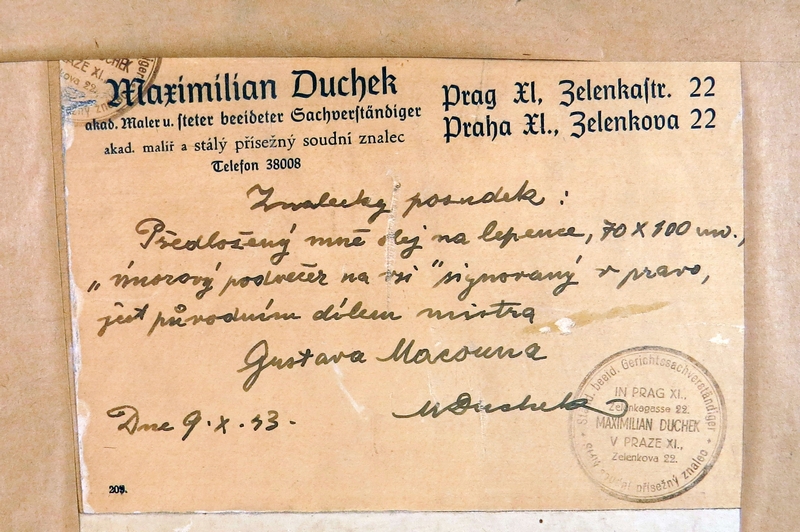 Maximilian Duchek
akad. Maler u. steter beeideter Sachverständiger
akad. malíř a stálý přísežný soudní znalec
Telefon 38008
Prag XI, Zelenkastr. 22
Praha XI., Zelenkova 22
Znalecky posudek :
Předložený mně olej na lepence, 70 X 100 cm.,
„únorový podvečer na vsi" signovaný v pravo,
jest původním dílem mistra
Gustava Macouna
Dne 9. X. 43.
MDuchek
St. u. beeid. Gerichtssachverständiger
IN PRAG XI.,
Zelenkagasse 22.
MAXIMILIAN DUCHEK
V PRAZE XI.,
Zelenkova 22.
Stálý soudní přísežný znalec
209.